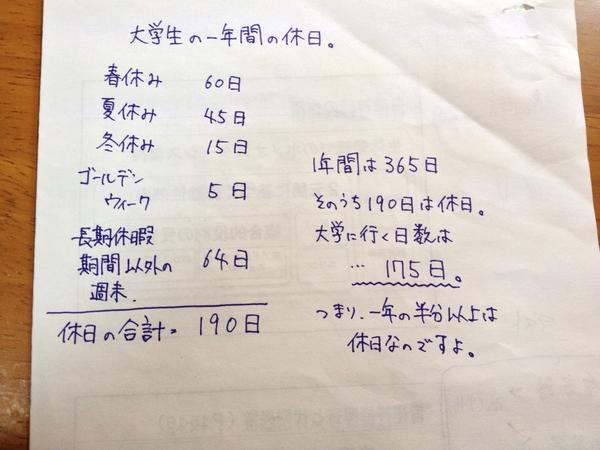 大学生の一年間の休日。
春休み 60日
夏休み 45日
冬休み 15日
ゴールデン
ウィーク 5日
長期休暇
期間以外の 64日
週末.
休日の合計= 190日
1年間は365日
そのうち190日は休日。
大学に行く日数は
… 175日。
つまり、一年の半分以上は
休日なのですよ。